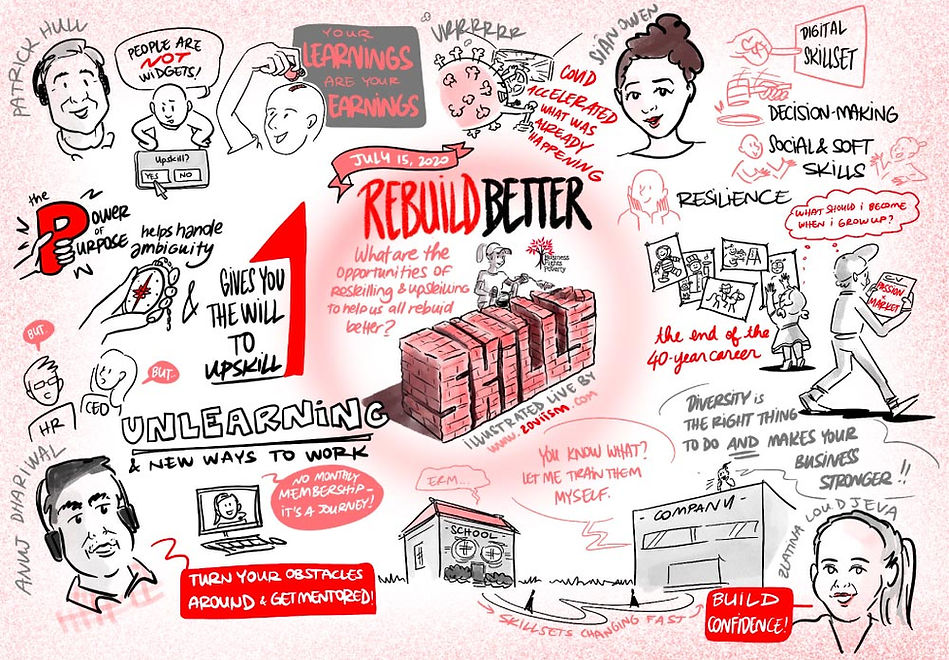 PATRICK HULL
PEOPLE ARE
NOT
WIDGETS!
Upskill?
YES
NO
YOUR
LEARNINGS
ARE YOUR
EARNINGS
VRRRRRR
COVID
ACCELERATED
WHAT WAS
ALREADY
HAPPENING
SIÂN OWEN
DIGITAL
SKILLSET
DECISION-MAKING
SOCIAL & SOFT
SKILLS
RESILIENCE
the
POWER
OF
PURPOSE
helps handle
ambiguity
&
1
GIVES YOU
THE WILL
TO
UPSKILL
JULY 15, 2020
REBUILD BETTER
What are the
opportunities of
Reskilling & upskilling
to help us all rebuild
better?
Business
Fights
Poverty
SKILLS
ILLUSTRATED LIVE BY
www.zoviism.com
WHAT SHOULD I BECOME
WHEN I GROW UP?
CV
PASSION
MARKET
the end of the
40-year career
BUT..
BUT..
HR
CEO
UNLEARNING
& NEW WAYS TO WORK
ANUJ DHARIWAL
NO MONTHLY
MEMBERSHIP -
IT'S A JOURNEY!
TURN YOUR OBSTACLES
AROUND & GET MENTORED!
ERM...
SCHOOL
YOU KNOW WHAT?
LET ME TRAIN THEM
MYSELF.
COMPANY
SKILLSETS CHANGING FAST
DIVERSITY is
THE RIGHT THING
TO DO AND MAKES YOUR
BUSINESS
STRONGER !!
ZLATINA LOUDJEVA
BUILD
CONFIDENCE!